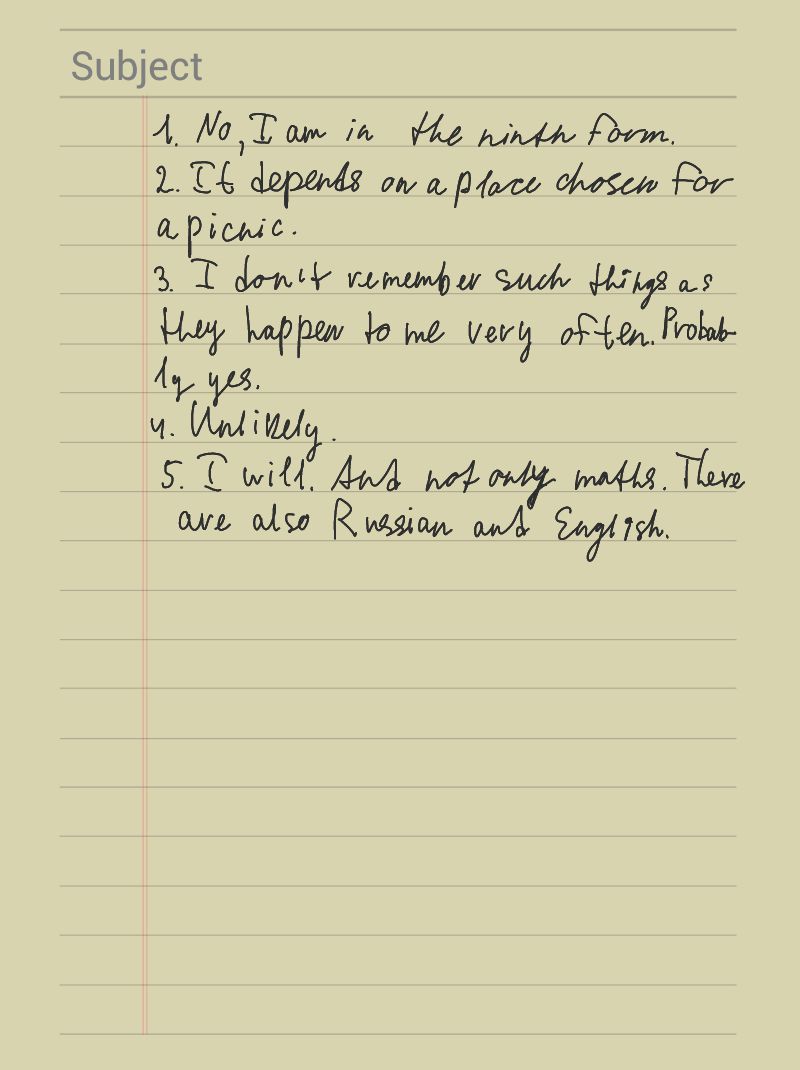 Subject
1. No, I am in the ninth form.
2. It depends on a place chosen for
a picnic.
3. I don't remember such things as
they happen to me very often. Probab-
ly yes.
4. Unlikely.
5. I will. And not only maths. There
are also Russian and English.